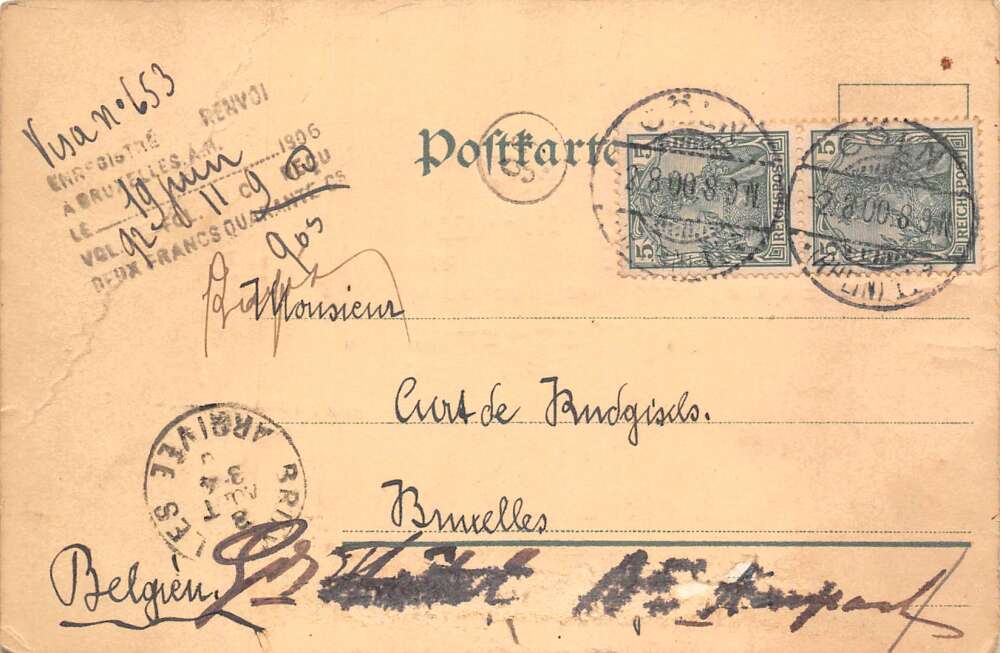 Visa n° 653
ENREGISTRÉ RENVOI
A BRUXELLES A.J.
LE 19 juin 1906
VOL. 92 F. 11 C. 9 REÇU
DEUX FRANCS QUARANTE CS
Postkarte
5 REICHSPOST 5
5 REICHSPOST 5
CÖLN
2.8.00.8-9N
(RHEIN)
CÖLN
2.8.00.8-9N
(RHEIN)
Monsieur
Curt de
Bruxelles
BRUXELLES ARRIVÉE
3-4
AOUT
Belgien.
Anspach